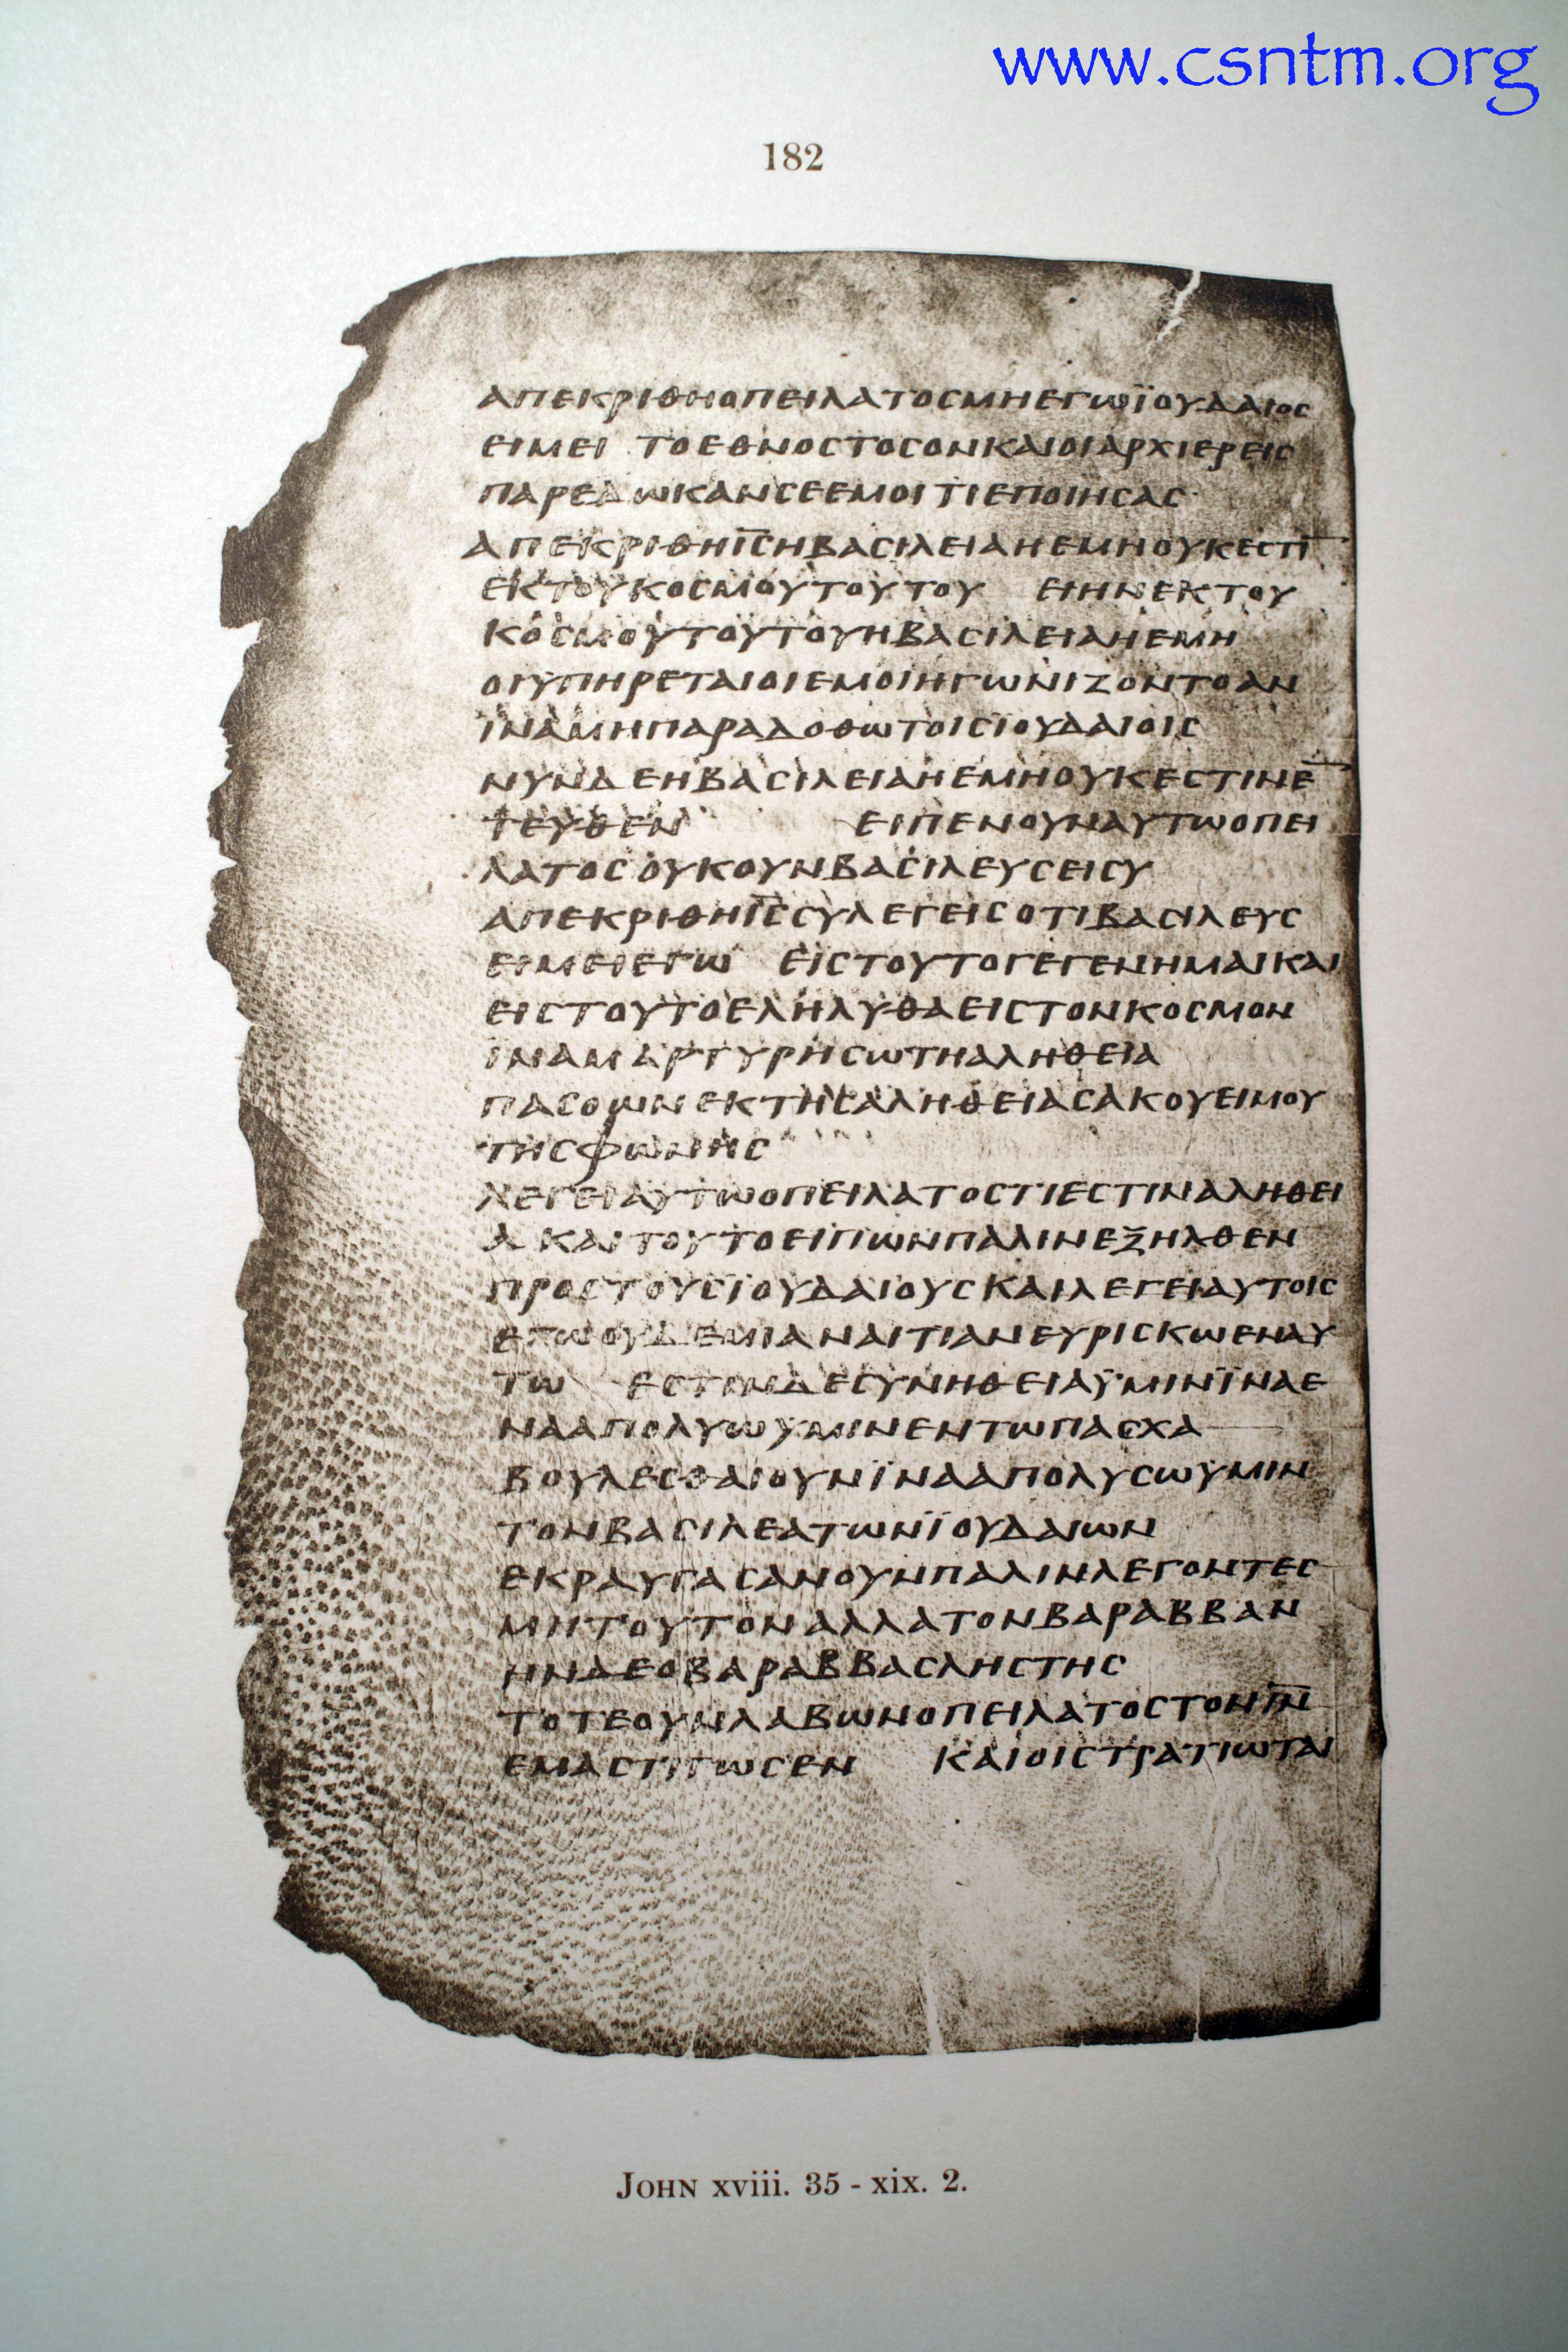 www.csntm.org
182
ΑΠΕΚΡΙΘΗΟΠΕΙΛΑΤΟCΜΗΕΓΩΪΟΥΔΑΙΟC
ΕΙΜΕΙ ΤΟΕΘΝΟCΤΟCΟΝΚΑΙΟΙΑΡΧΙΕΡΕΙC
ΠΑΡΕΔΩΚΑΝCΕΕΜΟΙ ΤΙΕΠΟΙΗCΑC
ΑΠΕΚΡΙΘΗΙ̅C̅ΗΒΑCΙΛΕΙΑΗΕΜΗΟΥΚΕCΤΙ̅
ΕΚΤΟΥΚΟCΜΟΥΤΟΥΤΟΥ ΕΙΗΝΕΚΤΟΥ
ΚΟCΜΟΥΤΟΥΤΟΥΗΒΑCΙΛΕΙΑΗΕΜΗ
ΟΙΥΠΗΡΕΤΑΙΟΙΕΜΟΙΗΓΩΝΙΖΟΝΤΟΑΝ
ΪΝΑΜΗΠΑΡΑΔΟΘΩΤΟΙCΪΟΥΔΑΙΟΙC
ΝΥΝΔΕΗΒΑCΙΛΕΙΑΗΕΜΗΟΥΚΕCΤΙΝΕ̅
ΤΕΥΘΕΝ ΕΙΠΕΝΟΥΝΑΥΤΩΟΠΕΙ
ΛΑΤΟC ΟΥΚΟΥΝΒΑCΙΛΕΥCΕΙCΥ
ΑΠΕΚΡΙΘΗΙ̅C̅CΥΛΕΓΕΙC ΟΤΙΒΑCΙΛΕΥC
ΕΙΜΕΙΕΓΩ ΕΙCΤΟΥΤΟΓΕΓΕΝΗΜΑΙΚΑΙ
ΕΙCΤΟΥΤΟΕΛΗΛΥΘΑΕΙCΤΟΝΚΟCΜΟΝ
ΪΝΑΜΑΡΤΥΡΗCΩΤΗΑΛΗΘΕΙΑ
ΠΑCΟΩΝΕΚΤΗCΑΛΗΘΕΙΑCΑΚΟΥΕΙΜΟΥ
ΤΗCΦΩΝΗC
ΛΕΓΕΙΑΥΤΩΟΠΕΙΛΑΤΟCΤΙΕCΤΙΝΑΛΗΘΕΙ
Α ΚΑΙΤΟΥΤΟΕΙΠΩΝΠΑΛΙΝΕΞΗΛΘΕΝ
ΠΡΟCΤΟΥCΪΟΥΔΑΙΟΥC ΚΑΙΛΕΓΕΙΑΥΤΟΙC
ΕΓΩΟΥΔΕΜΙΑΝΑΙΤΙΑΝΕΥΡΙCΚΩΕΝΑΥ
ΤΩ ΕCΤΙΝΔΕCΥΝΗΘΕΙΑΫΜΙΝΪΝΑΕ
ΝΑΑΠΟΛΥΩΥΜΙΝΕΝΤΩΠΑCΧΑ
ΒΟΥΛΕCΘΑΙΟΥΝΪΝΑΑΠΟΛΥCΩΥΜΙΝ
ΤΟΝΒΑCΙΛΕΑΤΩΝΪΟΥΔΑΙΩΝ
ΕΚΡΑΥΓΑCΑΝΟΥΝΠΑΛΙΝΛΕΓΟΝΤΕC
ΜΗΤΟΥΤΟΝΑΛΛΑΤΟΝΒΑΡΑΒΒΑΝ
ΗΝΔΕΟΒΑΡΑΒΒΑCΛΗCΤΗC
ΤΟΤΕΟΥΝΛΑΒΩΝΟΠΕΙΛΑΤΟCΤΟΝΙ̅Ν̅
ΕΜΑCΤΙΓΩCΕΝ ΚΑΙΟΙCΤΡΑΤΙΩΤΑΙ
JOHN xviii. 35 - xix. 2.